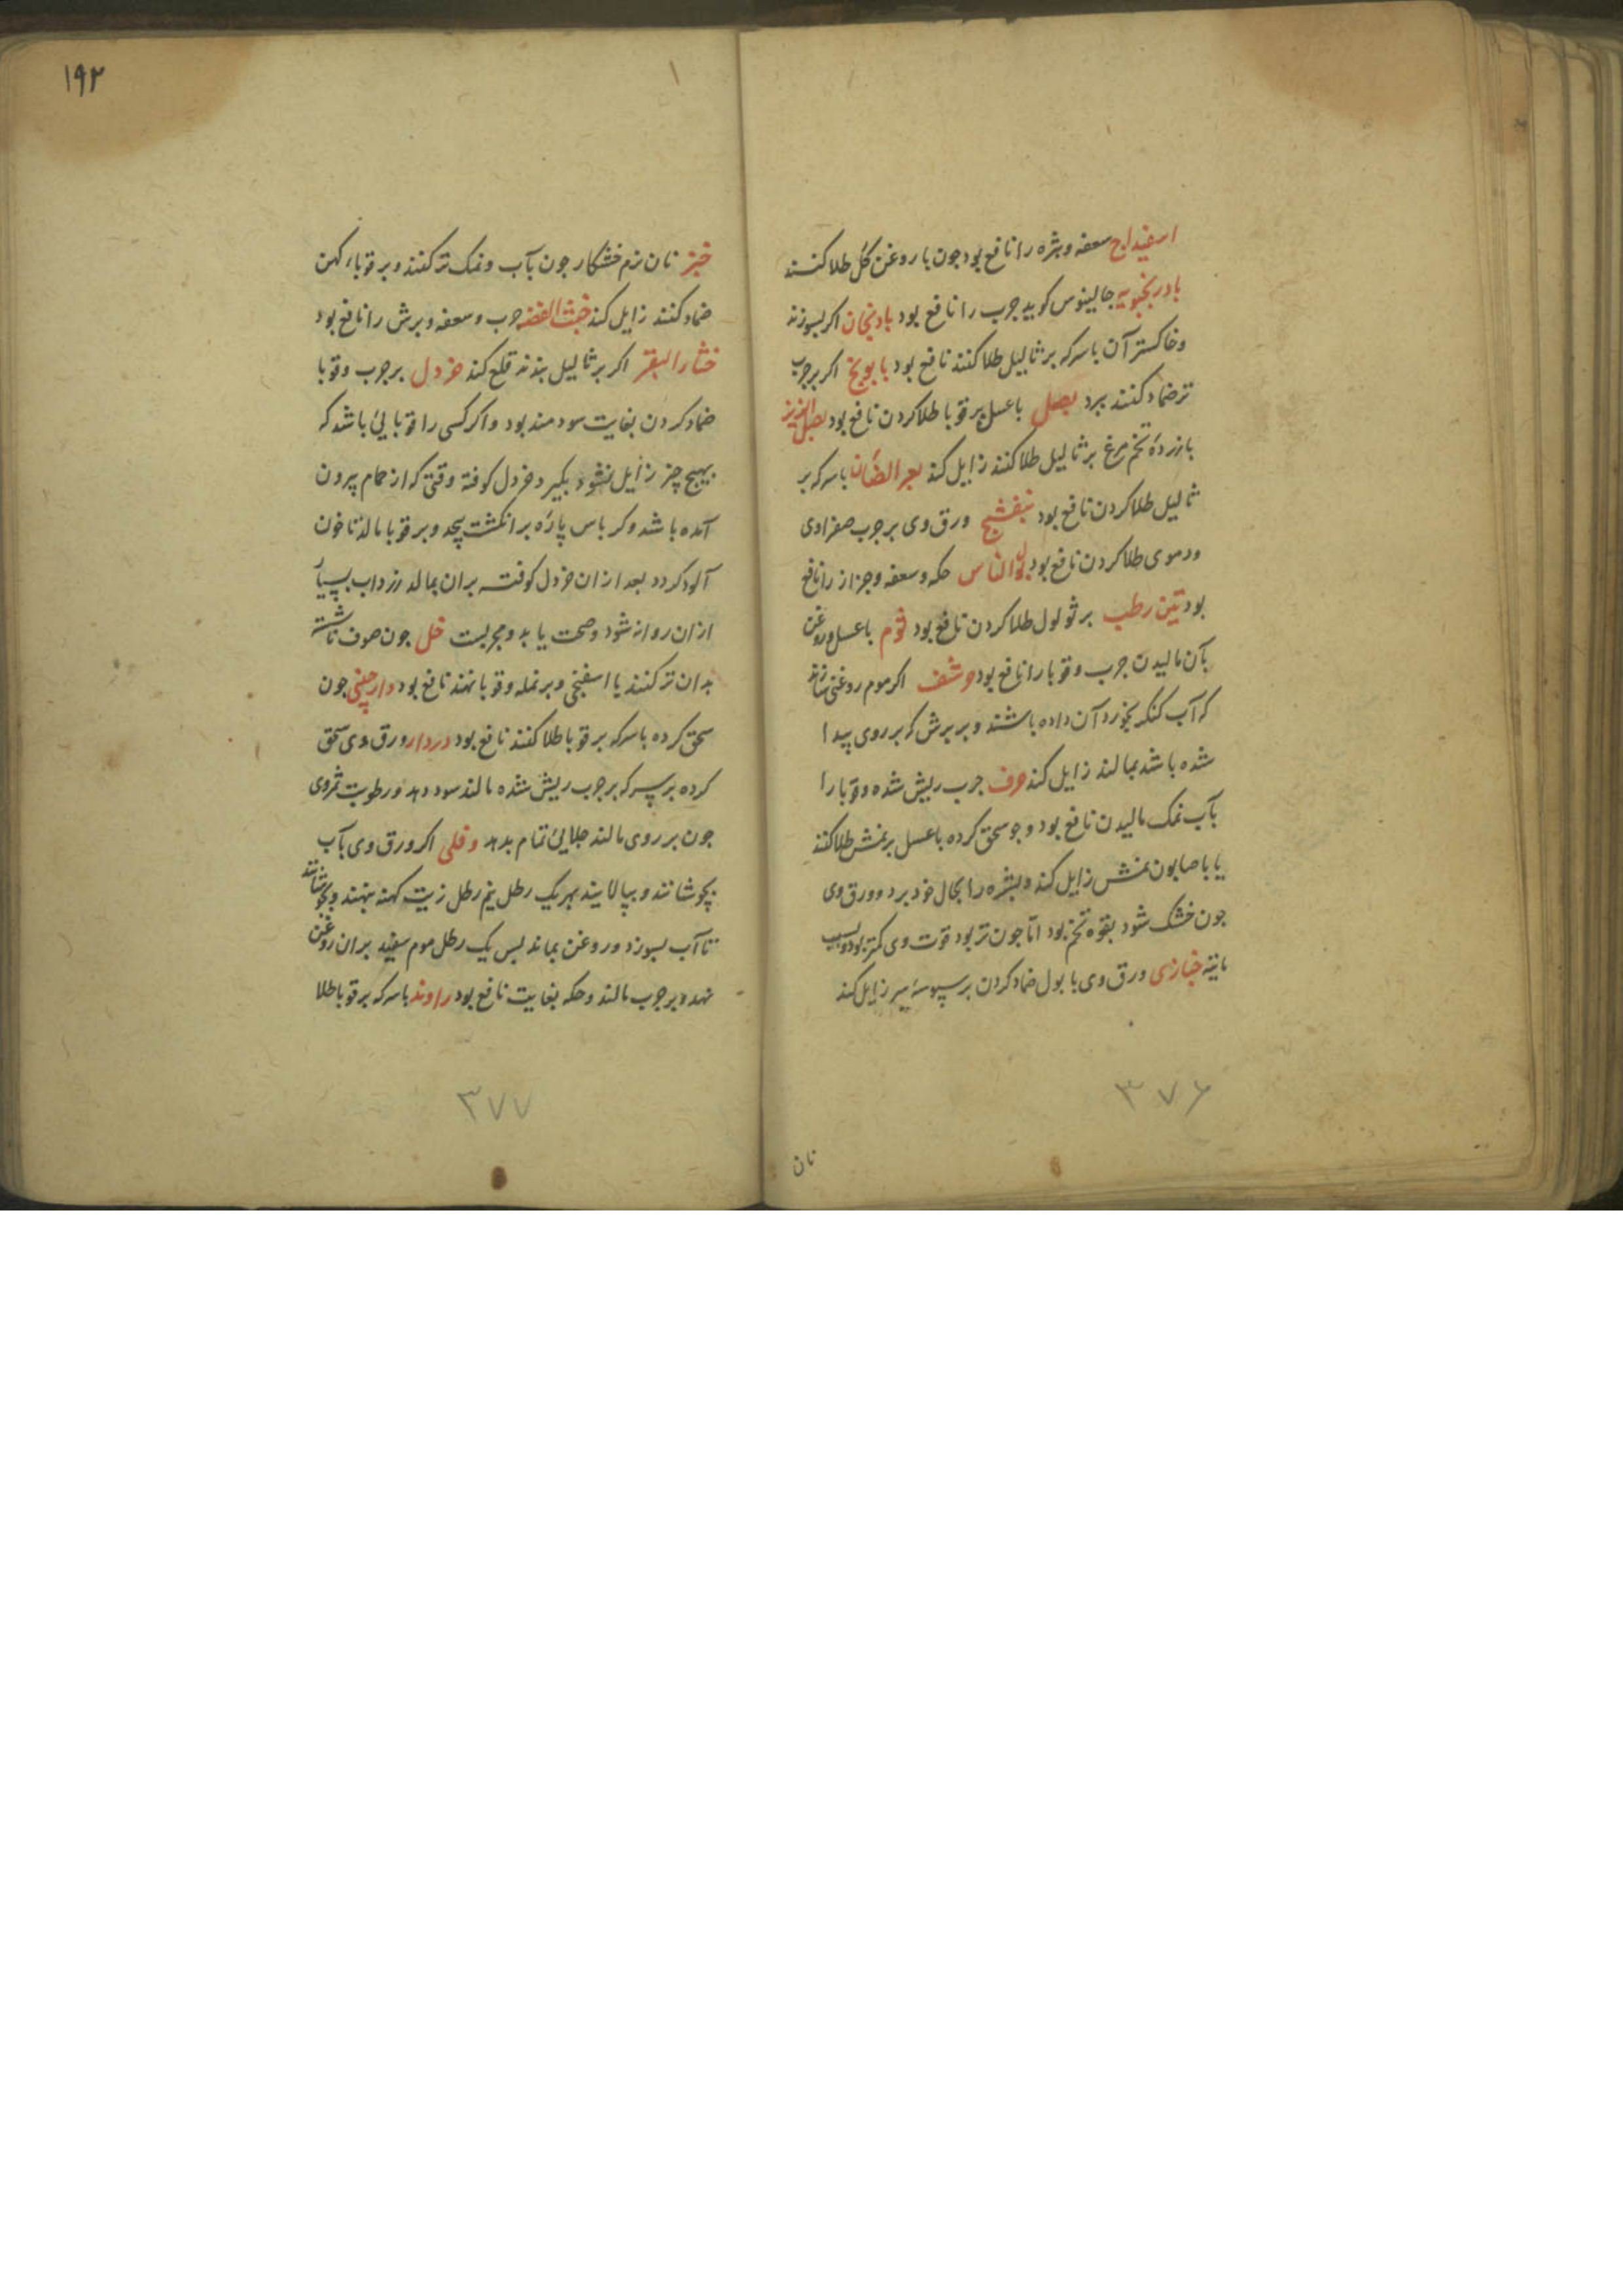 اسفیداج سعفه وبثره را نافع بود جون با روغن کل طلا کنند
بادرنجبویه جالینوس کوید جرب را نافع بود بادنجان اکر بسوزند
وخاکستر آن باسرکه بر ثالیل طلا کنند نافع بود بابونج اکر بر جرب
تر ضماد کنند ببرد بصل باعسل بر قوبا طلا کردن نافع بود بصل الزیز
با زردهٔ تخم مرغ بر ثالیل طلا کنند زایل کند بعر الضان باسرکه بر
ثالیل طلا کردن نافع بود بنفشج ورق وی بر جرب صفراوی
ودموی طلا کردن نافع بود بول الناس حکه وسعفه وحزاز را نافع
بود تین رطب بر ثولول طلا کردن نافع بود ثوم باعسل وروغن
بآن مالیدن جرب وقوبا را نافع بود حرشف اکر موم روغنی سازند
که آب کنکر بخورد آن داده باشند وبر برش که بر روی پیدا
شده باشد بمالند زایل کند حرف جرب ریش شده وقوبا را
بآب نمک مالیدن نافع بود وجو سحق کرده باعسل بر نمش طلا کنند
یا باصابون نمش زایل کند وبشره را بحال خود برد وورق وی
جون خشک شود بقوه تخم بود اما جون تر بود قوت وی کمتر بود بسبب
مائیه خبازی ورق وی با بول ضماد کردن بر سبوسهٔ سر زایل کند
۳۷۶
نان
۱۹۲
خبز نان نرم خشکار جون بآب ونمک تر کنند وبر قوباء کهن
ضماد کنند زایل کند خبث الفضه جرب وسعفه وبرش را نافع بود
خثار البقر اکر بر ثالیل بندند قلع کند خردل بر جرب وقوبا
ضماد کردن بغایت سودمند بود واکر کسی را قوبایی باشد که
بهیج چیز زایل نشود بکیرد خردل کوفته وقتی که از حمام بیرون
آمده باشد وکرباس پاره بر انکشت پیچد وبر قوبا مالد تا خون
آلود کردد بعد ازان خردل کوفته بران بمالد زرداب بسیار
ازان روانه شود وصحت یابد ومجربست خل جون صوف ناشسته
بدان تر کنند یا اسفنجی وبر نمله وقوبا نهند نافع بود دارچینی جون
سحق کرده باسرکه بر قوبا طلا کنند نافع بود دردار ورق وی سحق
کرده بر سرکه بر جرب ریش شده مالند سود دهد ورطوبت ثمر وی
جون بر روی مالند جلایی تمام بدهد دفلی اکر ورق وی بآب
بجوشانند وبپالایند بهر یک رطل نیم رطل زیت کهنه بنهند وبجوشانند
تا آب بسوزد وروغن بماند بس یک رطل موم سفید بران روغن
نهد وبر جرب مالند وحکه بغایت نافع بود راوند باسرکه بر قوبا طلا
۳۷۷